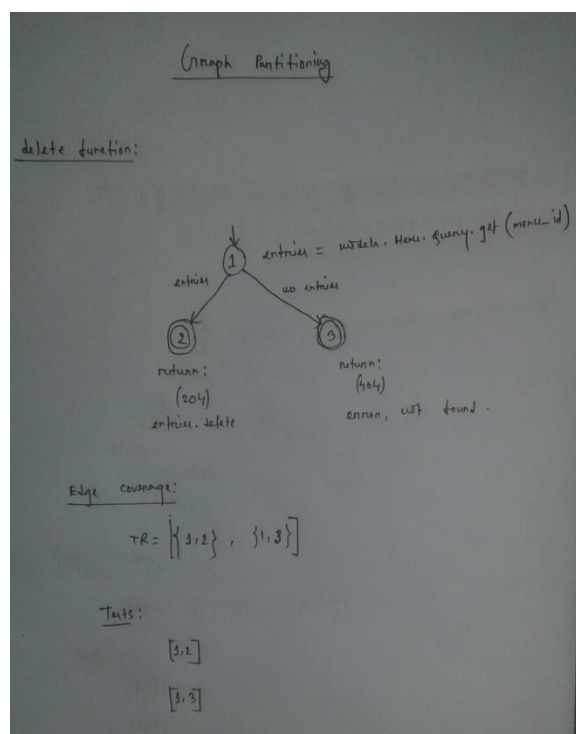 Graph Partitioning
delete function:
entries = models.Menu.query.get (menu_id)
1
entries
no entries
2
3
return:
(204)
entries.delete
return:
(404)
error, not found.
Edge coverage:
TR = [{1,2} , {1,3}]
Tests:
[1,2]
[1,3]